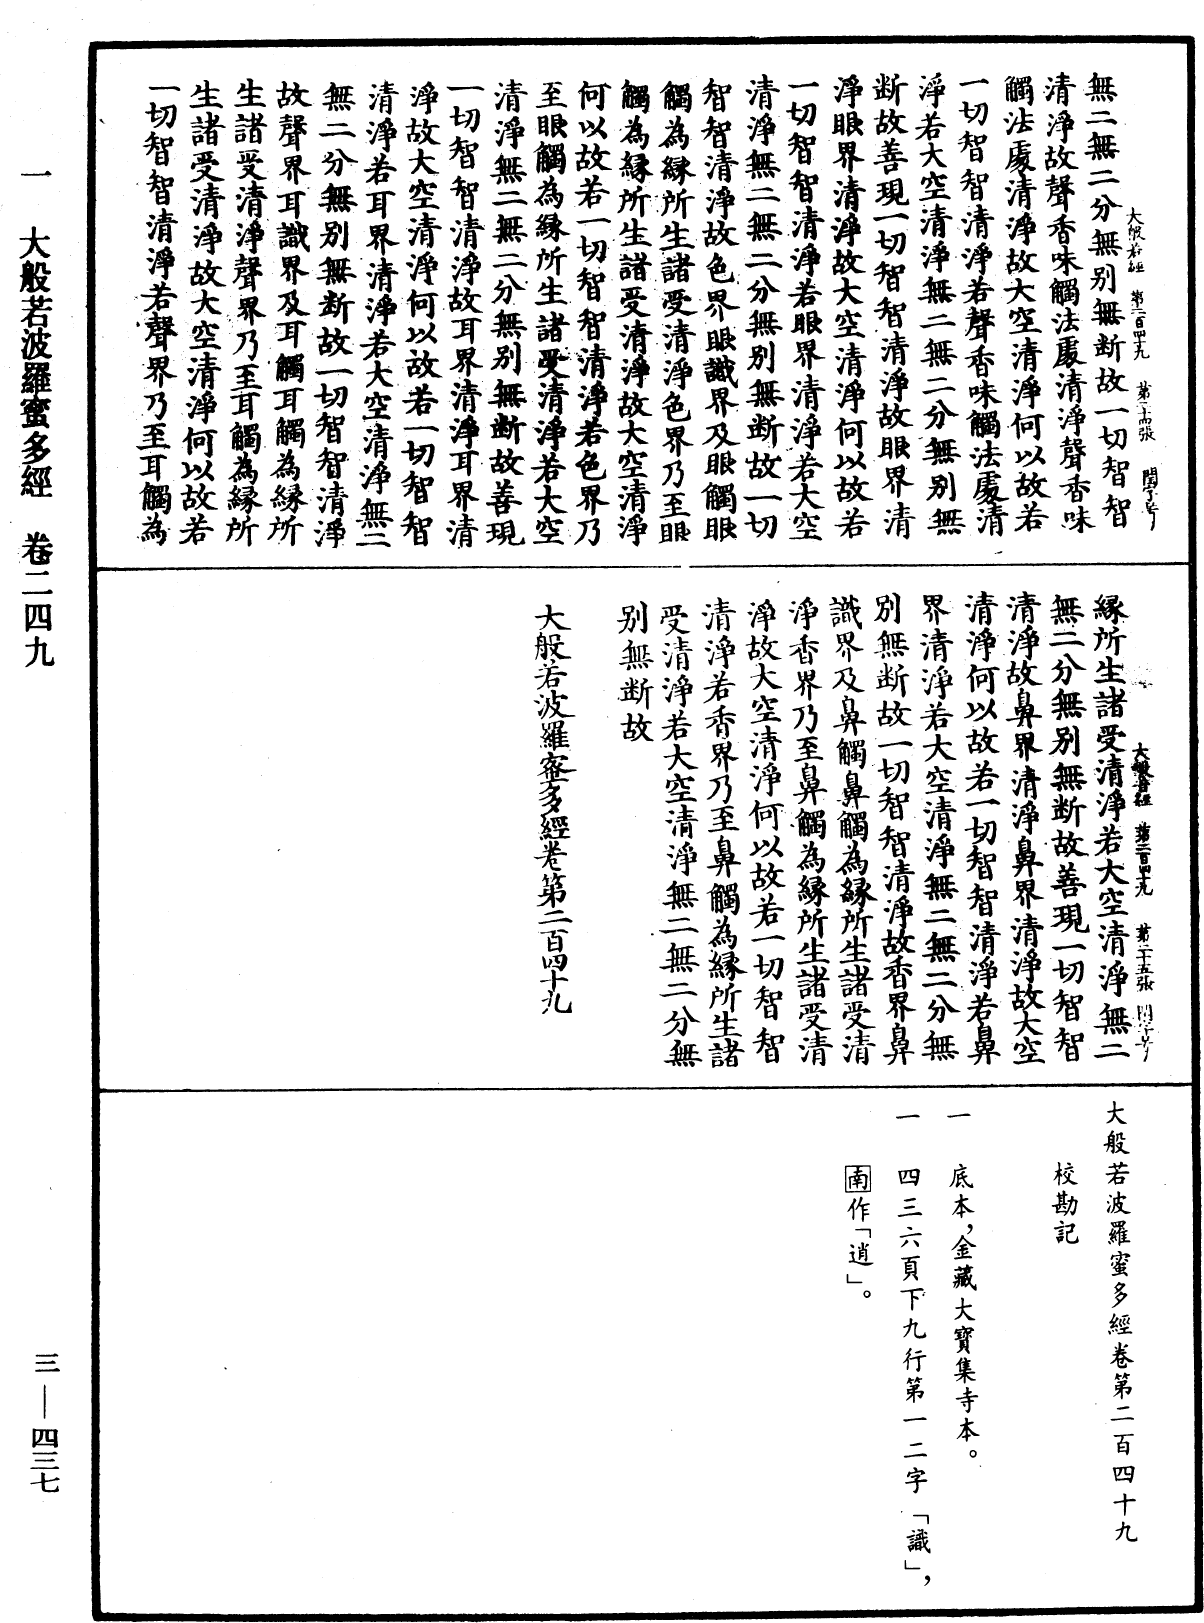 無二無二分無別無断故一切智智
清淨故聲香味觸法處清淨聲香味
觸法處清淨故大空清淨何以故若
一切智智清淨若聲香味觸法處清
淨若大空清淨無二無二分無別無
断故善現一切智智清淨故眼界清
淨眼界清淨故大空清淨何以故若
一切智智清淨若眼界清淨若大空
清淨無二無二分無別無断故一切
智智清淨故色界眼識界及眼觸眼
觸為緣所生諸受清淨色界乃至眼
觸為緣所生諸受清淨故大空清淨
何以故若一切智智清淨若色界乃
至眼觸為緣所生諸受清淨若大空
清淨無二無二分無別無断故善現
一切智智清淨故耳界清淨耳界清
淨故大空清淨何以故若一切智智
清淨若耳界清淨若大空清淨無二
無二分無別無断故一切智智清淨
故聲界耳識界及耳觸耳觸為緣所
生諸受清淨聲界乃至耳觸為緣所
生諸受清淨故大空清淨何以故若
一切智智清淨若聲界乃至耳觸為
大般若經 第二百四十九 第二十四張
緣所生諸受清淨若大空清淨無二
無二分無別無断故善現一切智智
清淨故鼻界清淨鼻界清淨故大空
清淨何以故若一切智智清淨若鼻
界清淨若大空清淨無二無二分無
別無断故一切智智清淨故香界鼻
識界及鼻觸鼻觸為緣所生諸受清
淨香界乃至鼻觸為緣所生諸受清
淨故大空清淨何以故若一切智智
清淨若香界乃至鼻觸為緣所生諸
受清淨若大空清淨無二無二分無
別無断故
大般若波羅蜜多經卷第二百四十九
大般若經 第二百四十九 第二十五張
大般若波羅蜜多經卷第二百四十九
校勘記
一 底本，金藏大寶集寺本。
一 四三六頁下九行第一二字「識」，
南作「逍」。
一 大般若波羅蜜多經 卷二四九
三—四三七